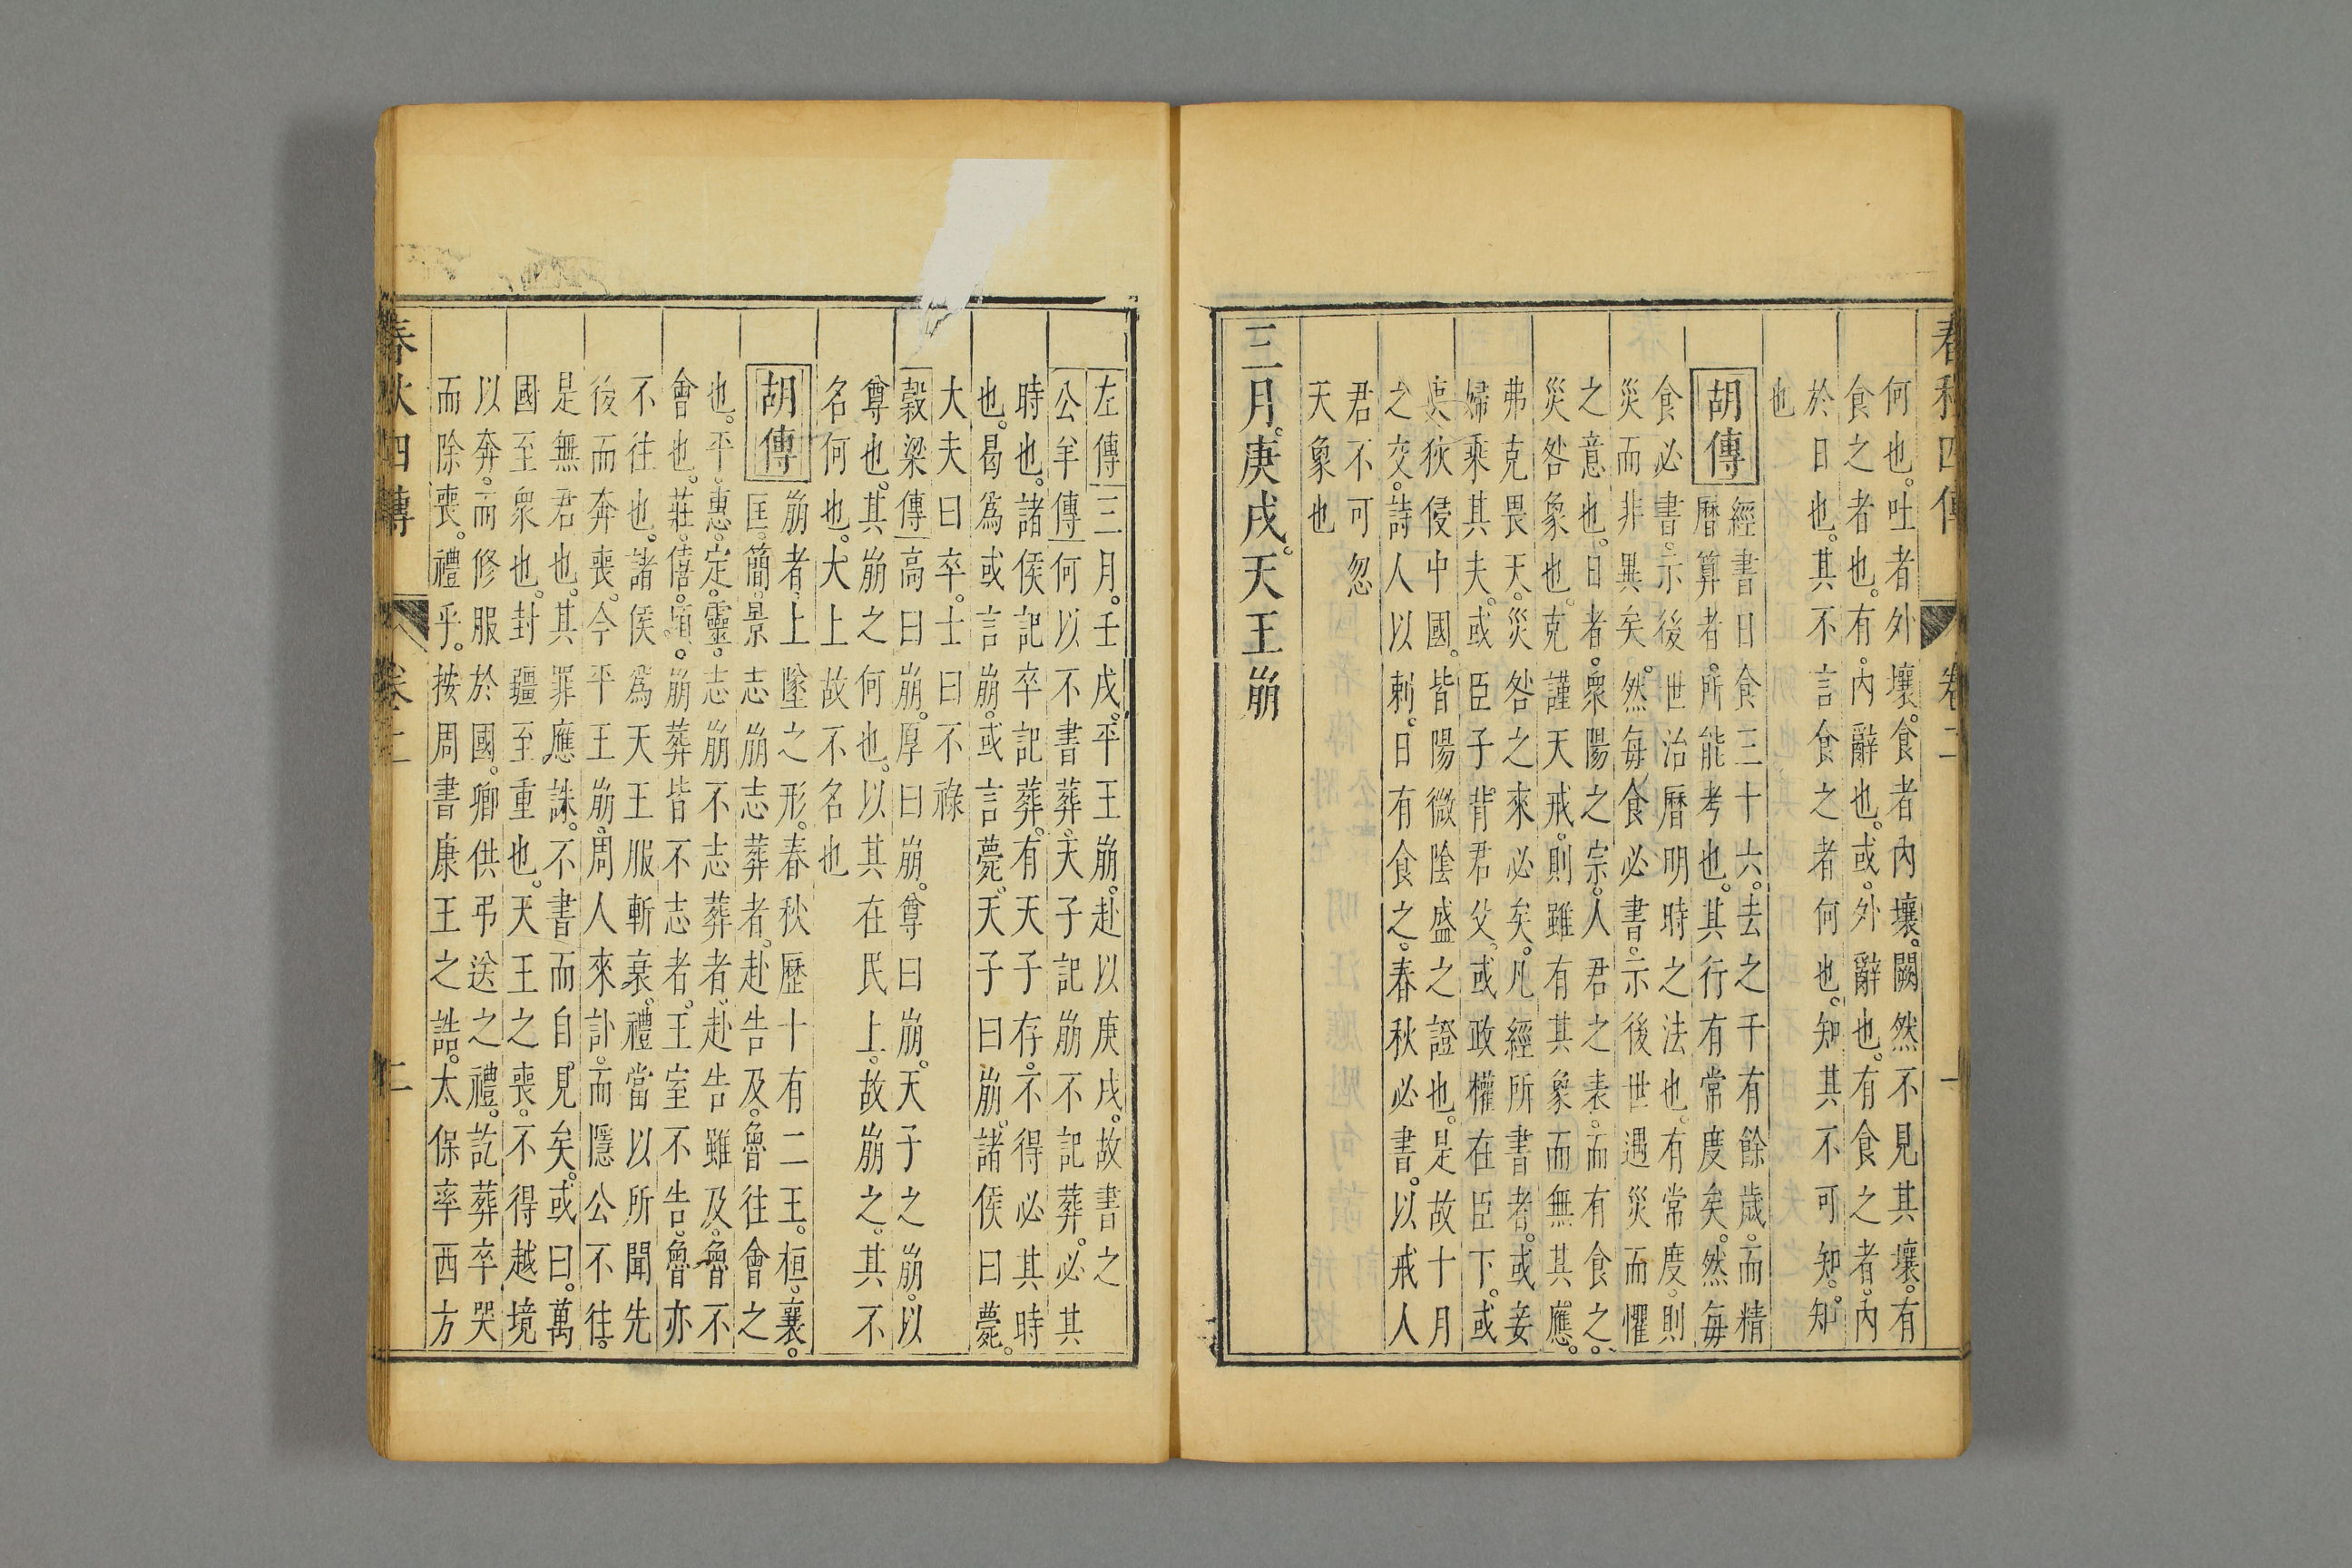 春秋四傳 卷二 一
何也。吐者外壤。食者內壤。闕然不見其壤。有
食之者也。有。內辭也。或。外辭也。有食之者。內
於日也。其不言食之者何也。知其不可知。知
也
胡傳
經書日食三十六。去之千有餘歲。而精
曆算者。所能考也。其行有常度矣。然每
食必書。示後世治曆明時之法也。有常度。則
災而非異矣。然每食必書。示後世遇災而懼
之意也。日者。衆陽之宗。人君之表。而有食之。
災咎象也。克謹天戒。則雖有其象而無其應。
弗克畏天。災咎之來必矣。凡經所書者。或妾
婦乘其夫。或臣子背君父。或政權在臣下。或
夷狄侵中國。皆陽微陰盛之證也。是故十月
之交。詩人以刺。日有食之。春秋必書。以戒人
君不可忽
天象也
三月。庚戌。天王崩
左傳三月。壬戌。平王崩。赴以庚戌。故書之
公羊傳何以不書葬。天子記崩不記葬。必其
時也。諸侯記卒記葬。有天子存。不得必其時
也。曷爲或言崩。或言薨。天子曰崩。諸侯曰薨。
大夫曰卒。士曰不祿
穀梁傳高曰崩。厚曰崩。尊曰崩。天子之崩。以
尊也。其崩之何也。以其在民上。故崩之。其不
名何也。大上故不名也
胡傳
崩者。上墜之形。春秋歷十有二王。桓。襄。
匡。簡。景志崩志葬者。赴告及。魯往會之
也。平。惠。定。靈。志崩不志葬者。赴告雖及。魯不
會也。莊。僖。頃。崩葬皆不志者。王室不告。魯亦
不往也。諸侯爲天王服斬衰。禮當以所聞先
後而奔喪。今平王崩。周人來訃。而隱公不往。
是無君也。其罪應誅。不書而自見矣。或曰。萬
國至衆也。封疆至重也。天王之喪。不得越境
以奔。而修服於國。卿供弔送之禮。訖葬卒哭
而除喪。禮乎。按周書康王之誥。太保率西方
春秋四傳 卷二 二